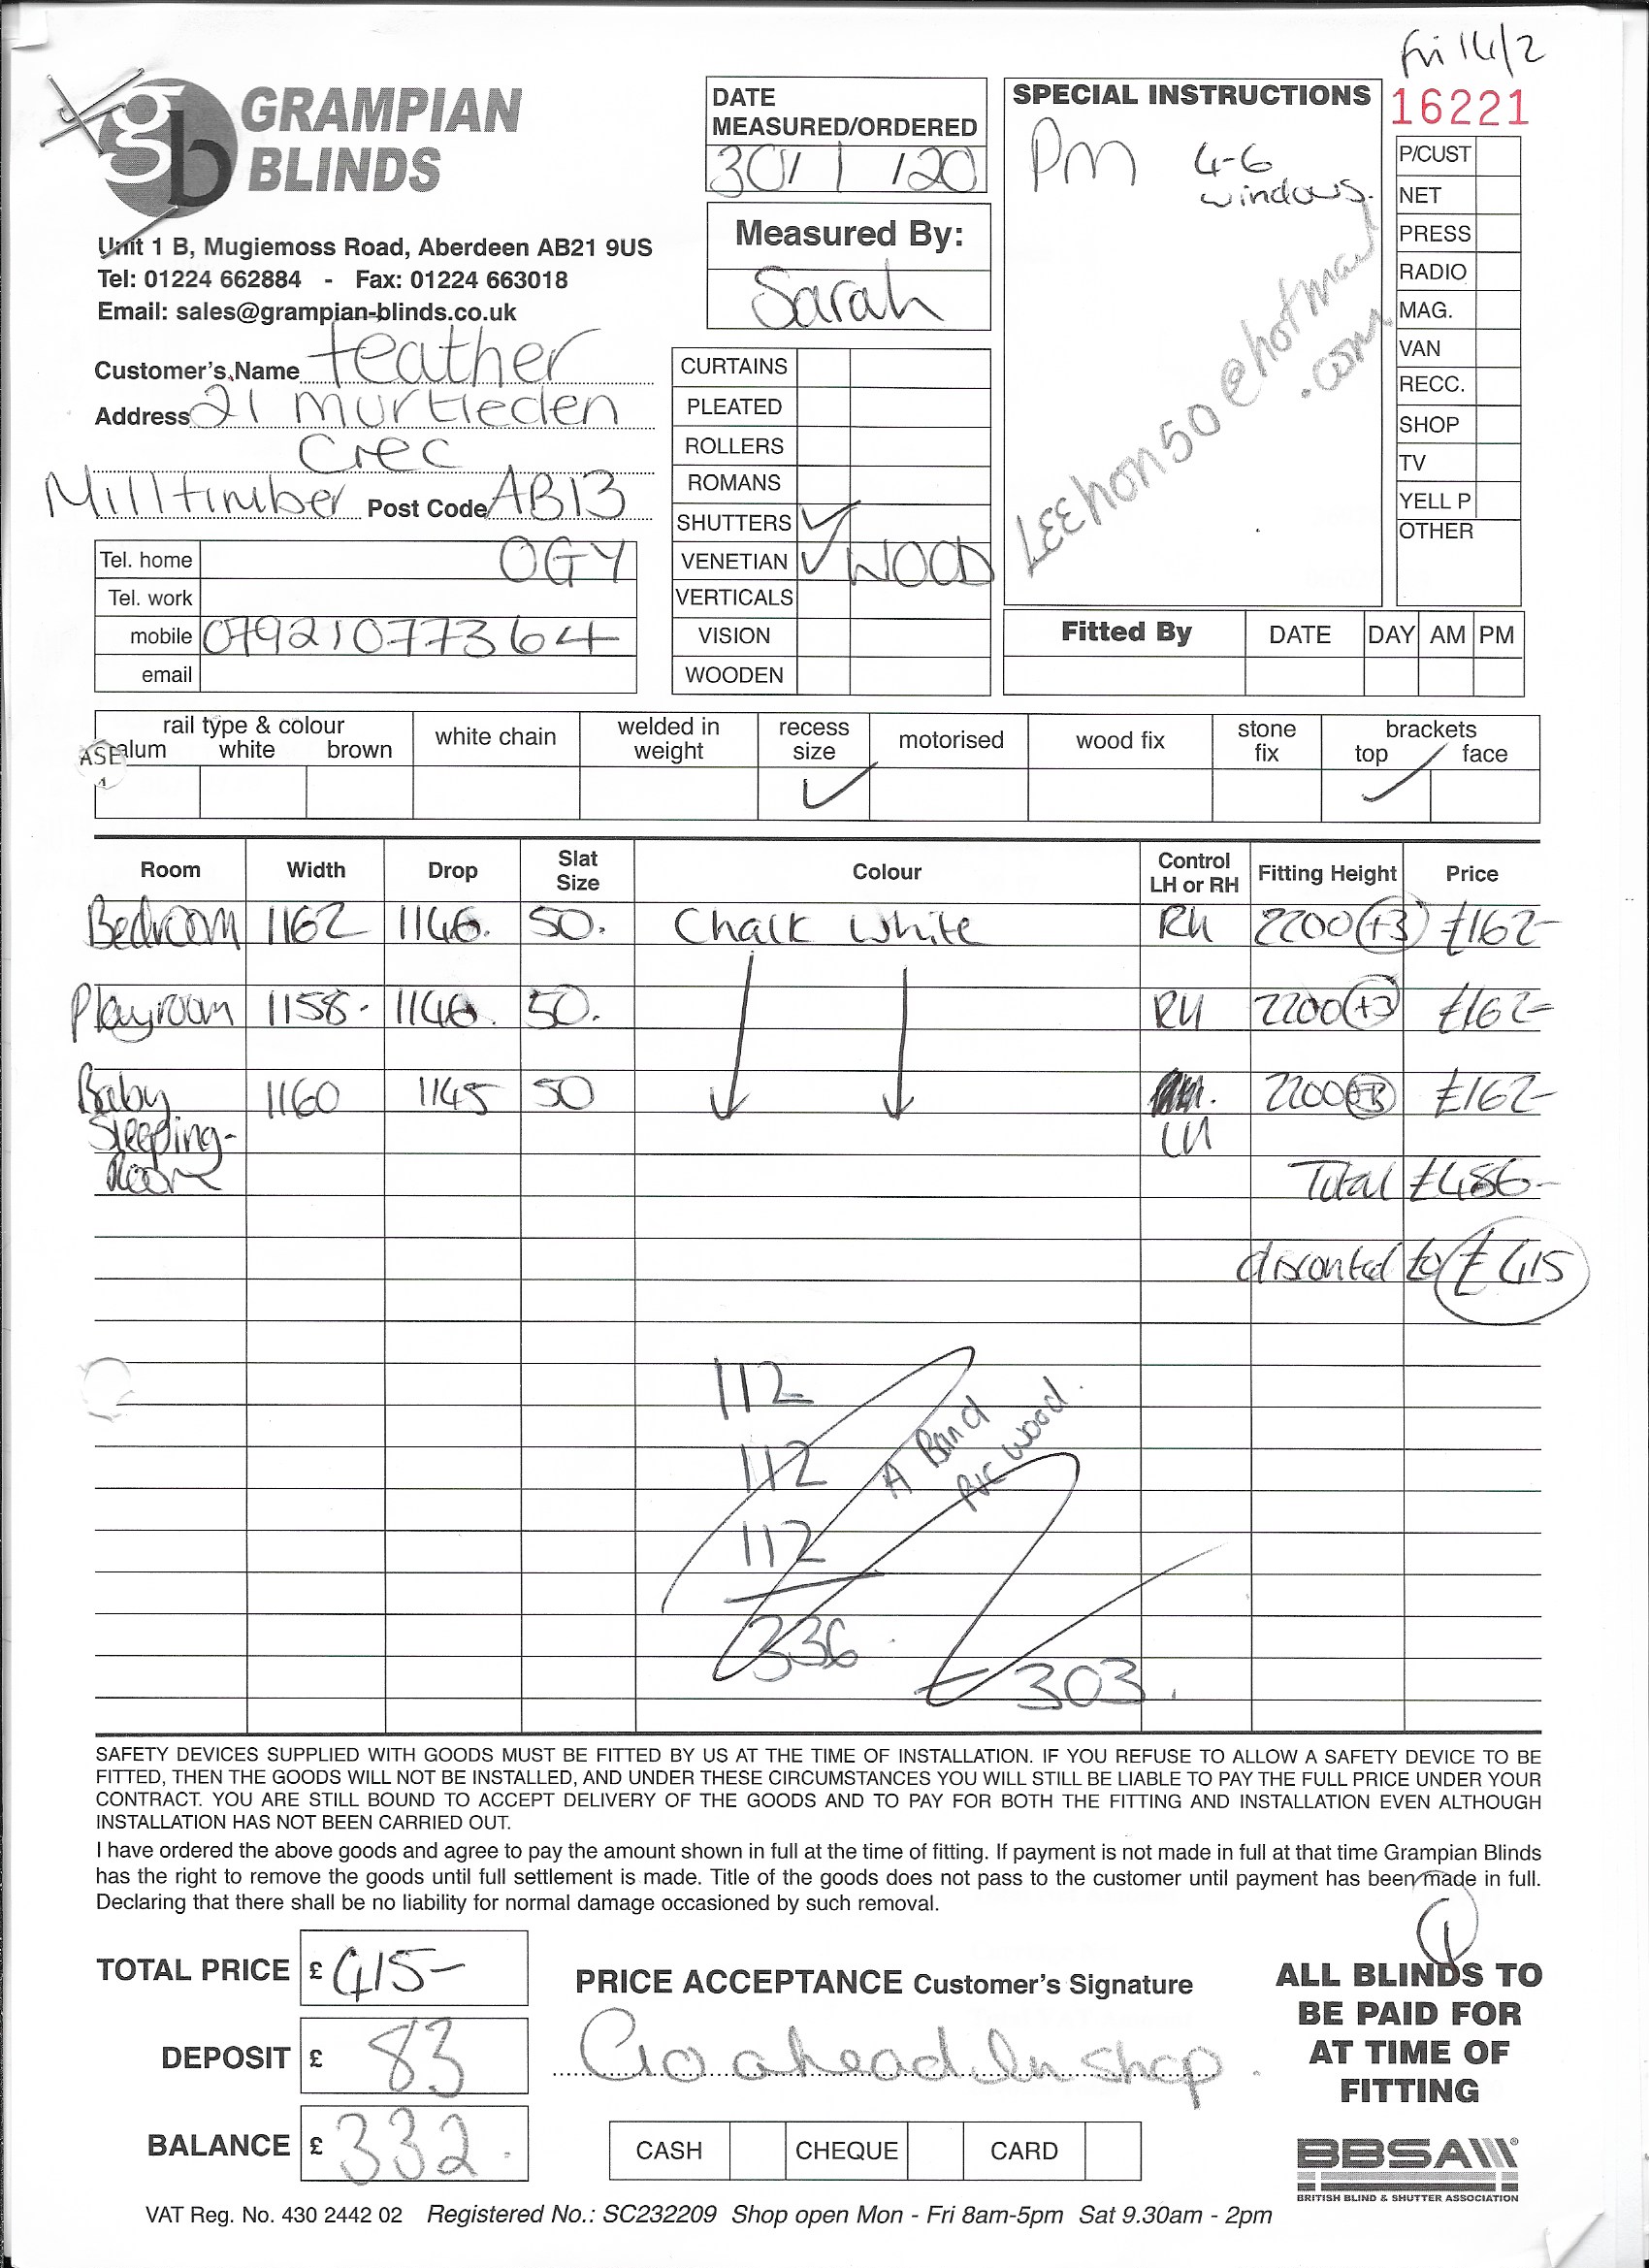 Fri 14/2
gb GRAMPIAN BLINDS
Unit 1 B, Mugiemoss Road, Aberdeen AB21 9US
Tel: 01224 662884 - Fax: 01224 663018
Email: sales@grampian-blinds.co.uk
Customer's Name feather
Address 21 Murtleden
Cres
Milltimber Post Code AB13
0GY
Tel. home
Tel. work
mobile 07921077364
email
DATE
MEASURED/ORDERED
30/1/20
Measured By:
Sarah
CURTAINS
PLEATED
ROLLERS
ROMANS
SHUTTERS ✓
VENETIAN ✓ WOOD
VERTICALS
VISION
WOODEN
SPECIAL INSTRUCTIONS
PM 4-6
windows.
LEEhon50@hotmail
.com
16221
P/CUST
NET
PRESS
RADIO
MAG.
VAN
RECC.
SHOP
TV
YELL P
OTHER
Fitted By DATE DAY AM PM
rail type & colour white chain welded in weight recess size motorised wood fix stone fix brackets
alum white brown top face
ASE
✓ ✓
Room Width Drop Slat Size Colour Control LH or RH Fitting Height Price
Bedroom 1162 1146. 50. Chalk White RH 2200 (+3) £162-
Playroom 1158. 1146. 50. RH 2200 (+3) £162-
Baby 1160 1145 50 2200 (+3) £162-
Sleeping- LH
Room
Total £486-
disconted to £415
112
112
112
336.
A Band
PVC Wood.
£303.
SAFETY DEVICES SUPPLIED WITH GOODS MUST BE FITTED BY US AT THE TIME OF INSTALLATION. IF YOU REFUSE TO ALLOW A SAFETY DEVICE TO BE
FITTED, THEN THE GOODS WILL NOT BE INSTALLED, AND UNDER THESE CIRCUMSTANCES YOU WILL STILL BE LIABLE TO PAY THE FULL PRICE UNDER YOUR
CONTRACT. YOU ARE STILL BOUND TO ACCEPT DELIVERY OF THE GOODS AND TO PAY FOR BOTH THE FITTING AND INSTALLATION EVEN ALTHOUGH
INSTALLATION HAS NOT BEEN CARRIED OUT.
I have ordered the above goods and agree to pay the amount shown in full at the time of fitting. If payment is not made in full at that time Grampian Blinds
has the right to remove the goods until full settlement is made. Title of the goods does not pass to the customer until payment has been made in full.
Declaring that there shall be no liability for normal damage occasioned by such removal.
TOTAL PRICE £ 415-
DEPOSIT £ 83
BALANCE £ 332.
PRICE ACCEPTANCE Customer's Signature
Go ahead In shop.
CASH CHEQUE CARD
ALL BLINDS TO
BE PAID FOR
AT TIME OF
FITTING
BBSA
BRITISH BLIND & SHUTTER ASSOCIATION
VAT Reg. No. 430 2442 02 Registered No.: SC232209 Shop open Mon - Fri 8am-5pm Sat 9.30am - 2pm